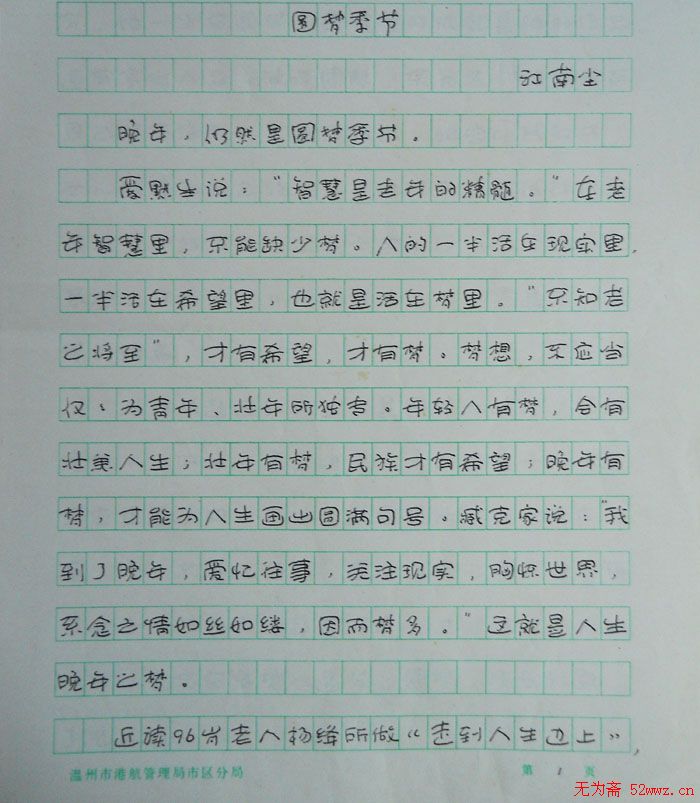 圆梦季节
江南尘
晚年，仍然是圆梦季节。
爱默生说：“智慧是老年的精髓。”在老
年智慧里，不能缺少梦。人的一半活在现实里，
一半活在希望里，也就是活在梦里。“不知老
之将至”，才有希望，才有梦。梦想，不应当
仅仅为青年、壮年所独专。年轻人有梦，会有
壮美人生；壮年有梦，民族才有希望；晚年有
梦，才能为人生画出圆满句号。臧克家说：“我
到了晚年，爱忆往事，关注现实，胸怀世界，
系念之情如丝如缕，因而梦多。”这就是人生
晚年之梦。
近读96岁老人杨绛所做《走到人生边上》，
温州市港航管理局市区分局 第 1 页
无为斋 52wwz.cn